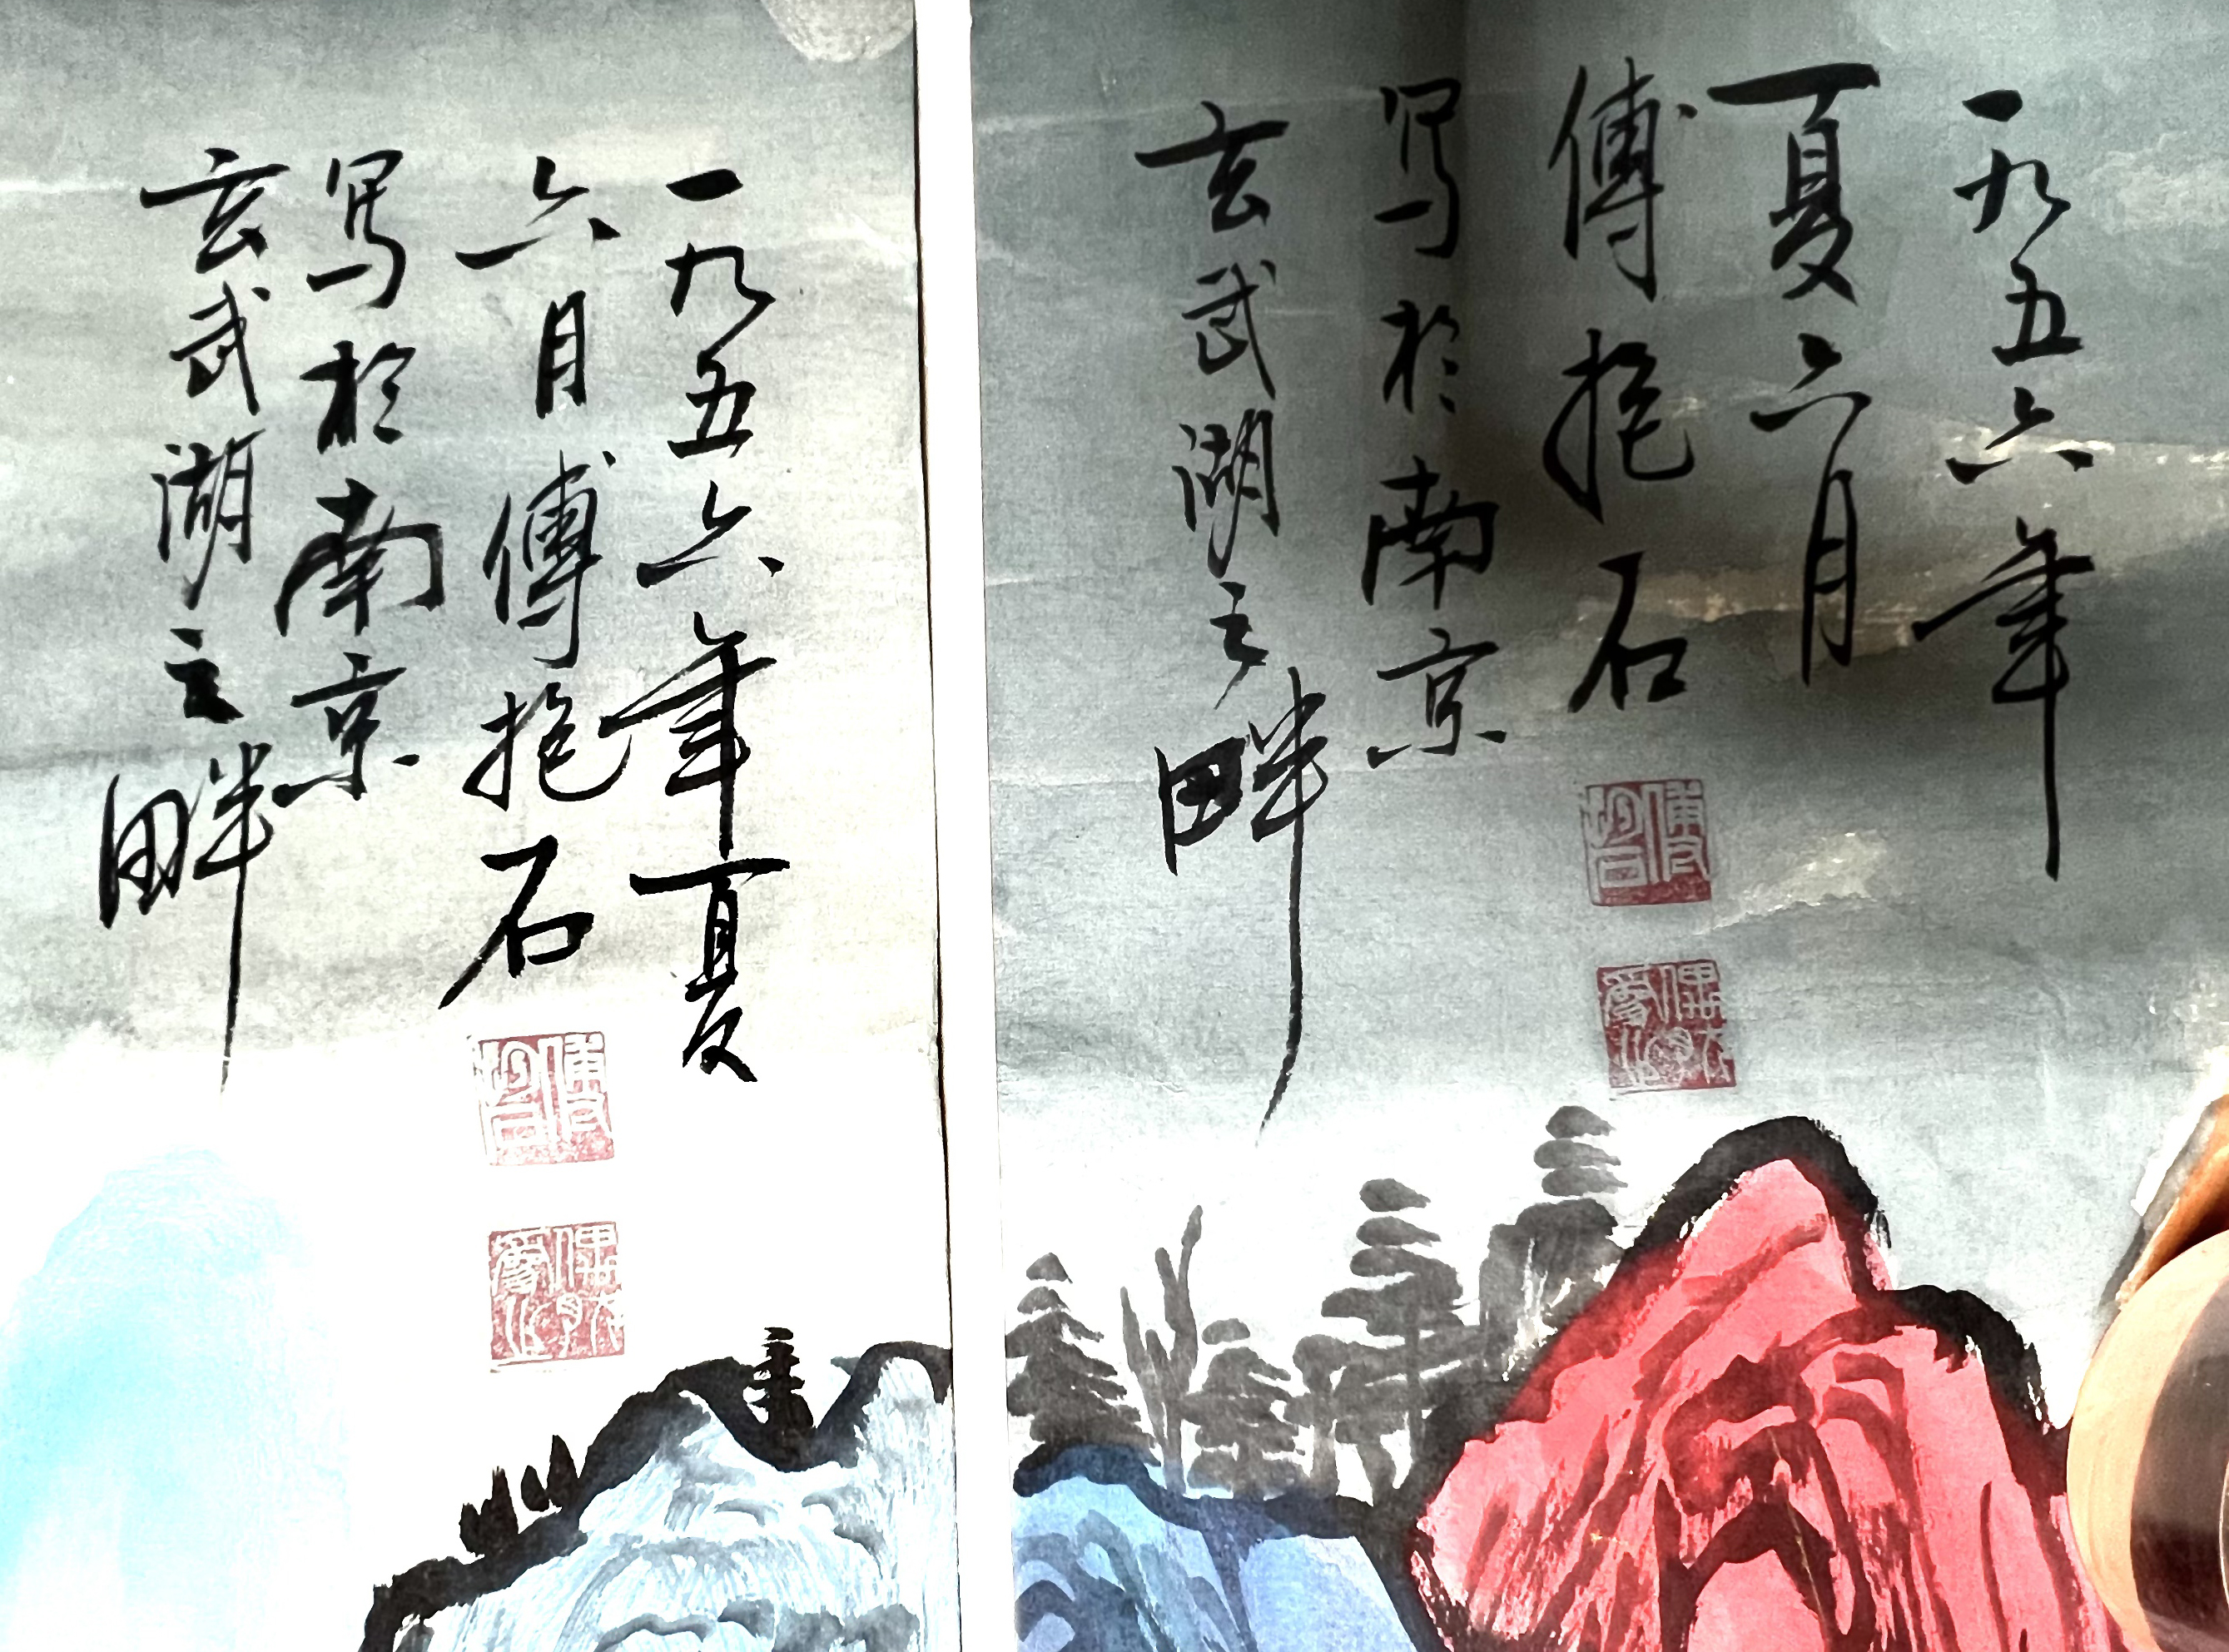 一九五六年夏
六月傅抱石
寫於南京
玄武湖之畔
傅抱石
一九五六年
夏六月
傅抱石
寫於南京
玄武湖之畔
傅抱石